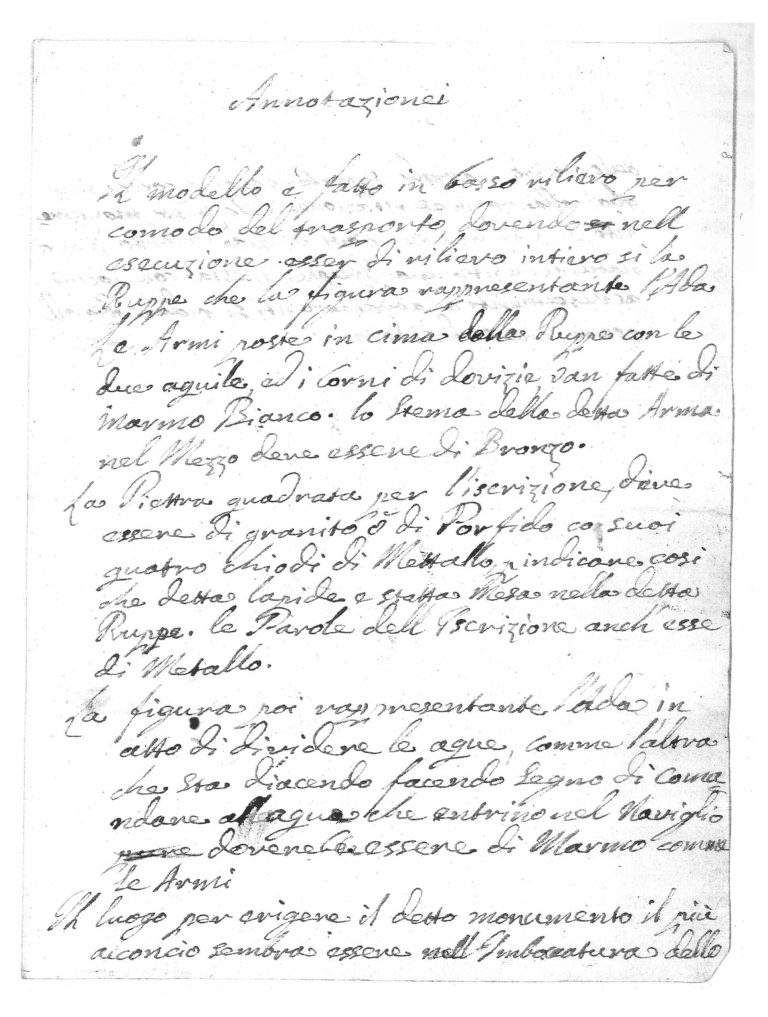 Annotazionei
Il modello è fatto in basso riliero per
comodo del trasporto, dovendosi nell
esecuzione esser di riliero intiero si la
Ruppe che la figura rappresentante l'Ada
Le Armi poste in cima della Ruppe con le
due aquile, ed i corni di dovizie, van fatte di
Marmo Bianco. lo Stema della detta Arma
nel Mezzo deve essere di Bronzo.
La Piettra quadrata per l'iscrizione, deve
essere di granito ò di Porfido co suoi
quatro chiodi di Mettallo indicare cosi
che detta lapide e statta Mesa nella detta
Ruppe. le Parole dell Iscrizione anch'esse
di Metallo.
La figura poi rappresentante l'Ada in
atto di dividere le aque, comme l'altra
che sta diacendo facendo Segno di Coma-
ndare all aqua che entrino nel Naviglio
pure doverebe essere di Marmo comme
le Armi
Il luogo per erigere il detto monumento il più
aconcio sembra essere nell'Imbocatura dello